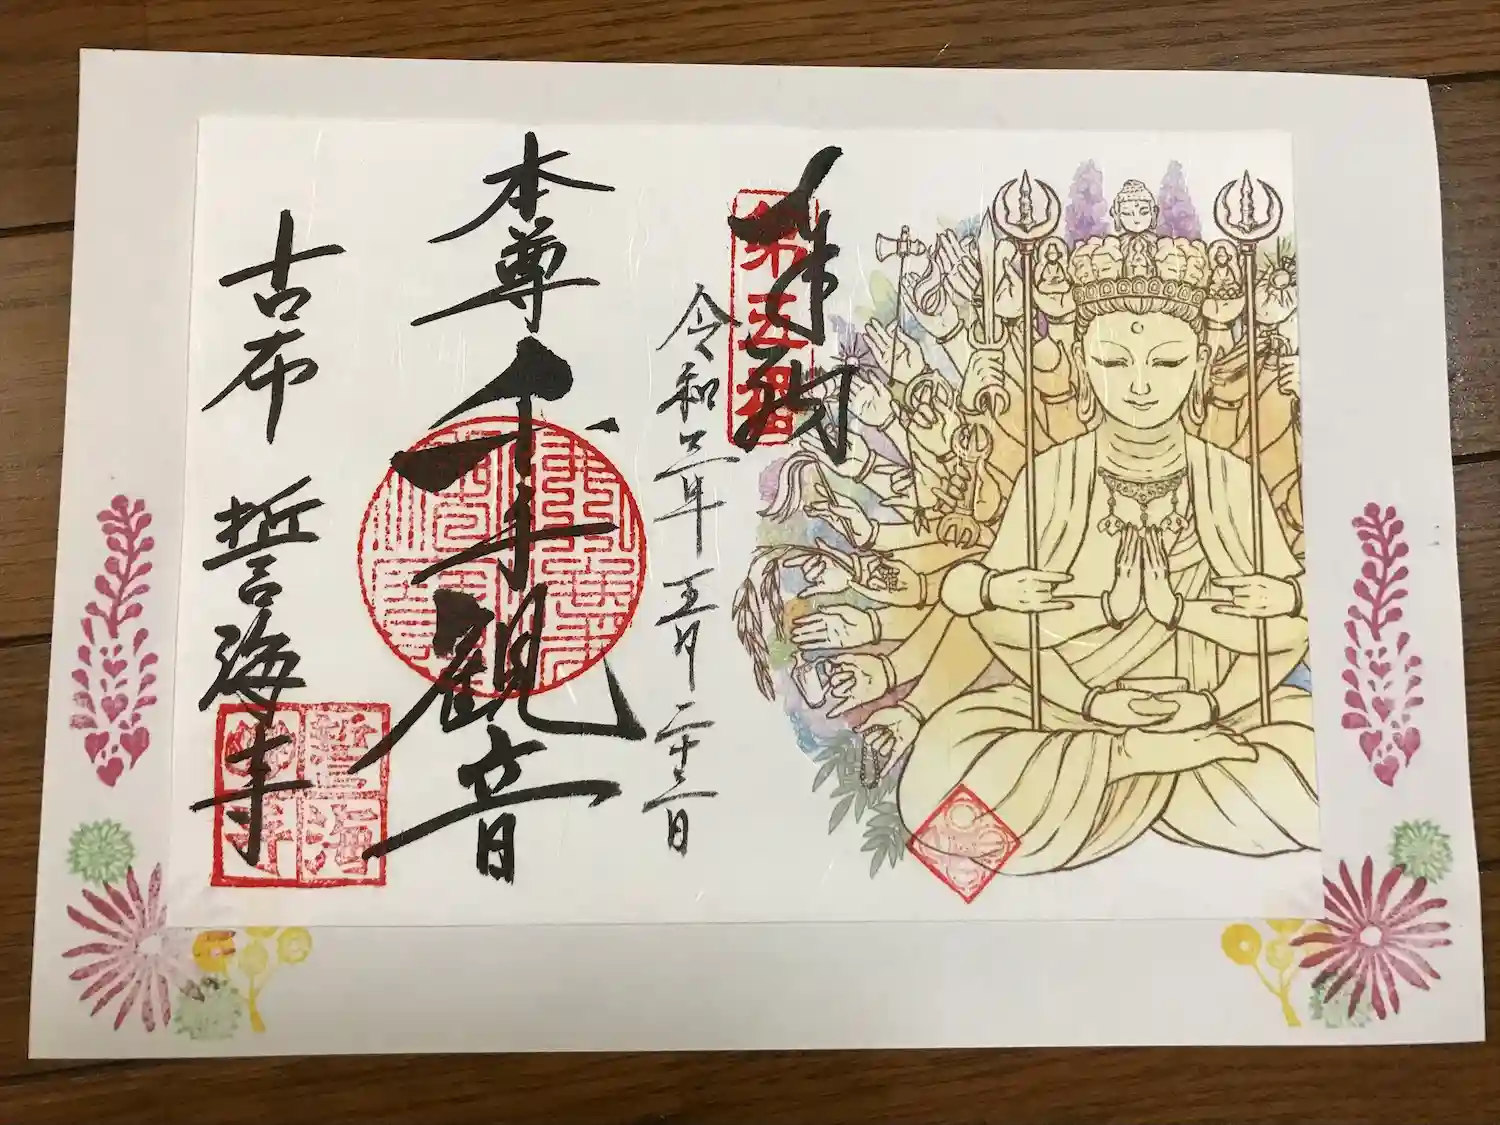 奉納
第五番
令和三年五月二十三日
本尊千手観音
古布 誓海寺
誓海
禅寺